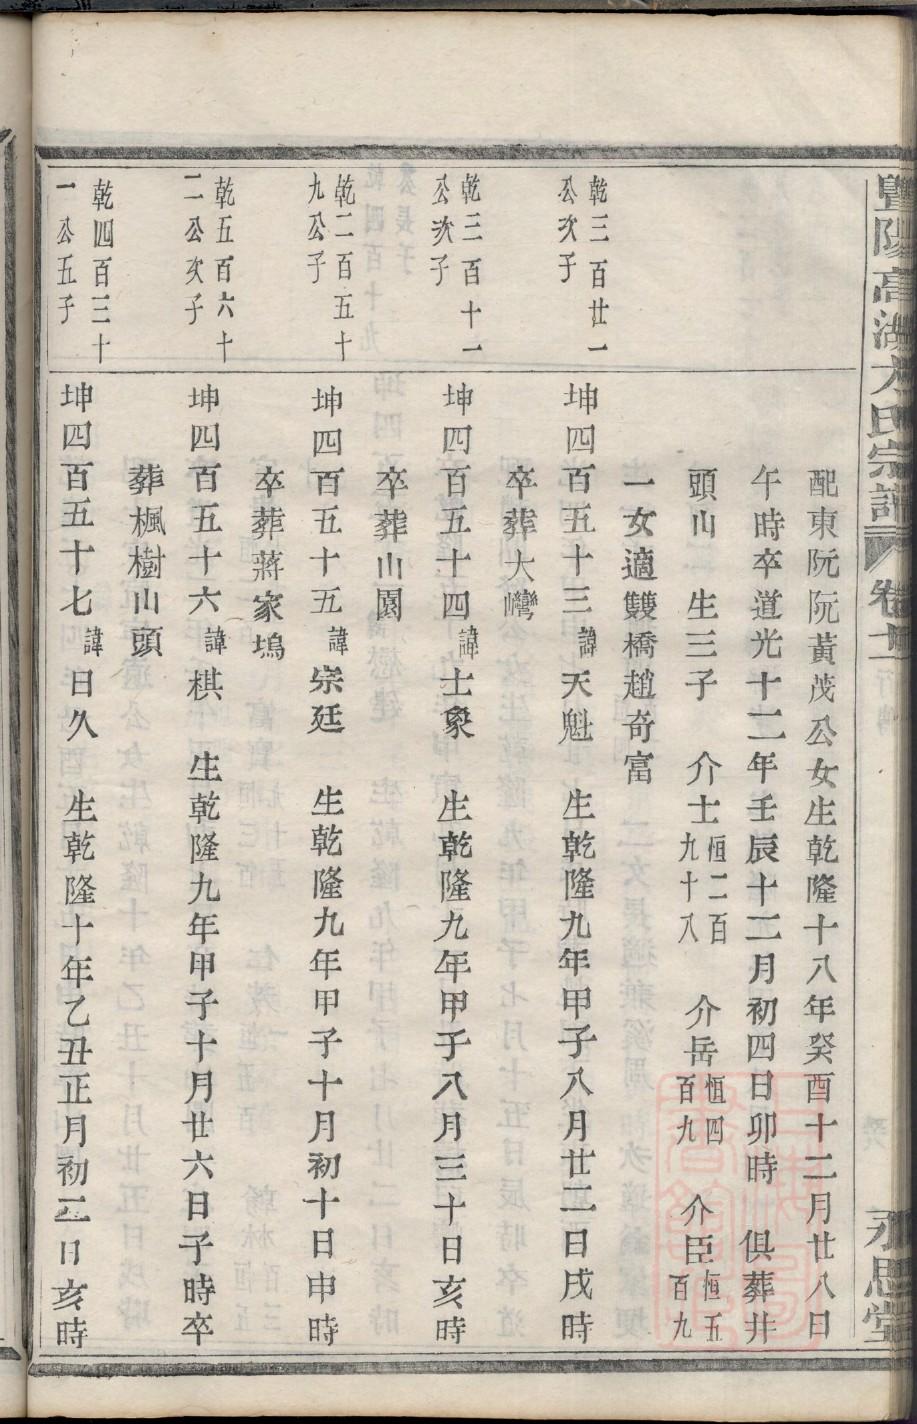 暨陽高湖方氏宗譜 卷十 行傳 永思堂
配東阮阮黃茂公女生乾隆十八年癸酉十二月廿八日
午時卒道光十二年壬辰十二月初四日卯時 俱葬井
頭山 生三子 介士恒二百九十八 介岳恒四百九 介臣恒五百九
一女適雙橋趙奇富
乾三百廿一公次子
坤四百五十三諱天魁 生乾隆九年甲子八月廿二日戌時
卒葬大灣
乾三百十一公次子
坤四百五十四諱士象 生乾隆九年甲子八月三十日亥時
卒葬山園
乾二百五十九公子
坤四百五十五諱宗廷 生乾隆九年甲子十月初十日申時
卒葬蔣家塢
乾五百六十二公次子
坤四百五十六諱棋 生乾隆九年甲子十月廿六日子時卒
葬楓樹山頭
乾四百三十一公五子
坤四百五十七諱日久 生乾隆十年乙丑正月初二日亥時